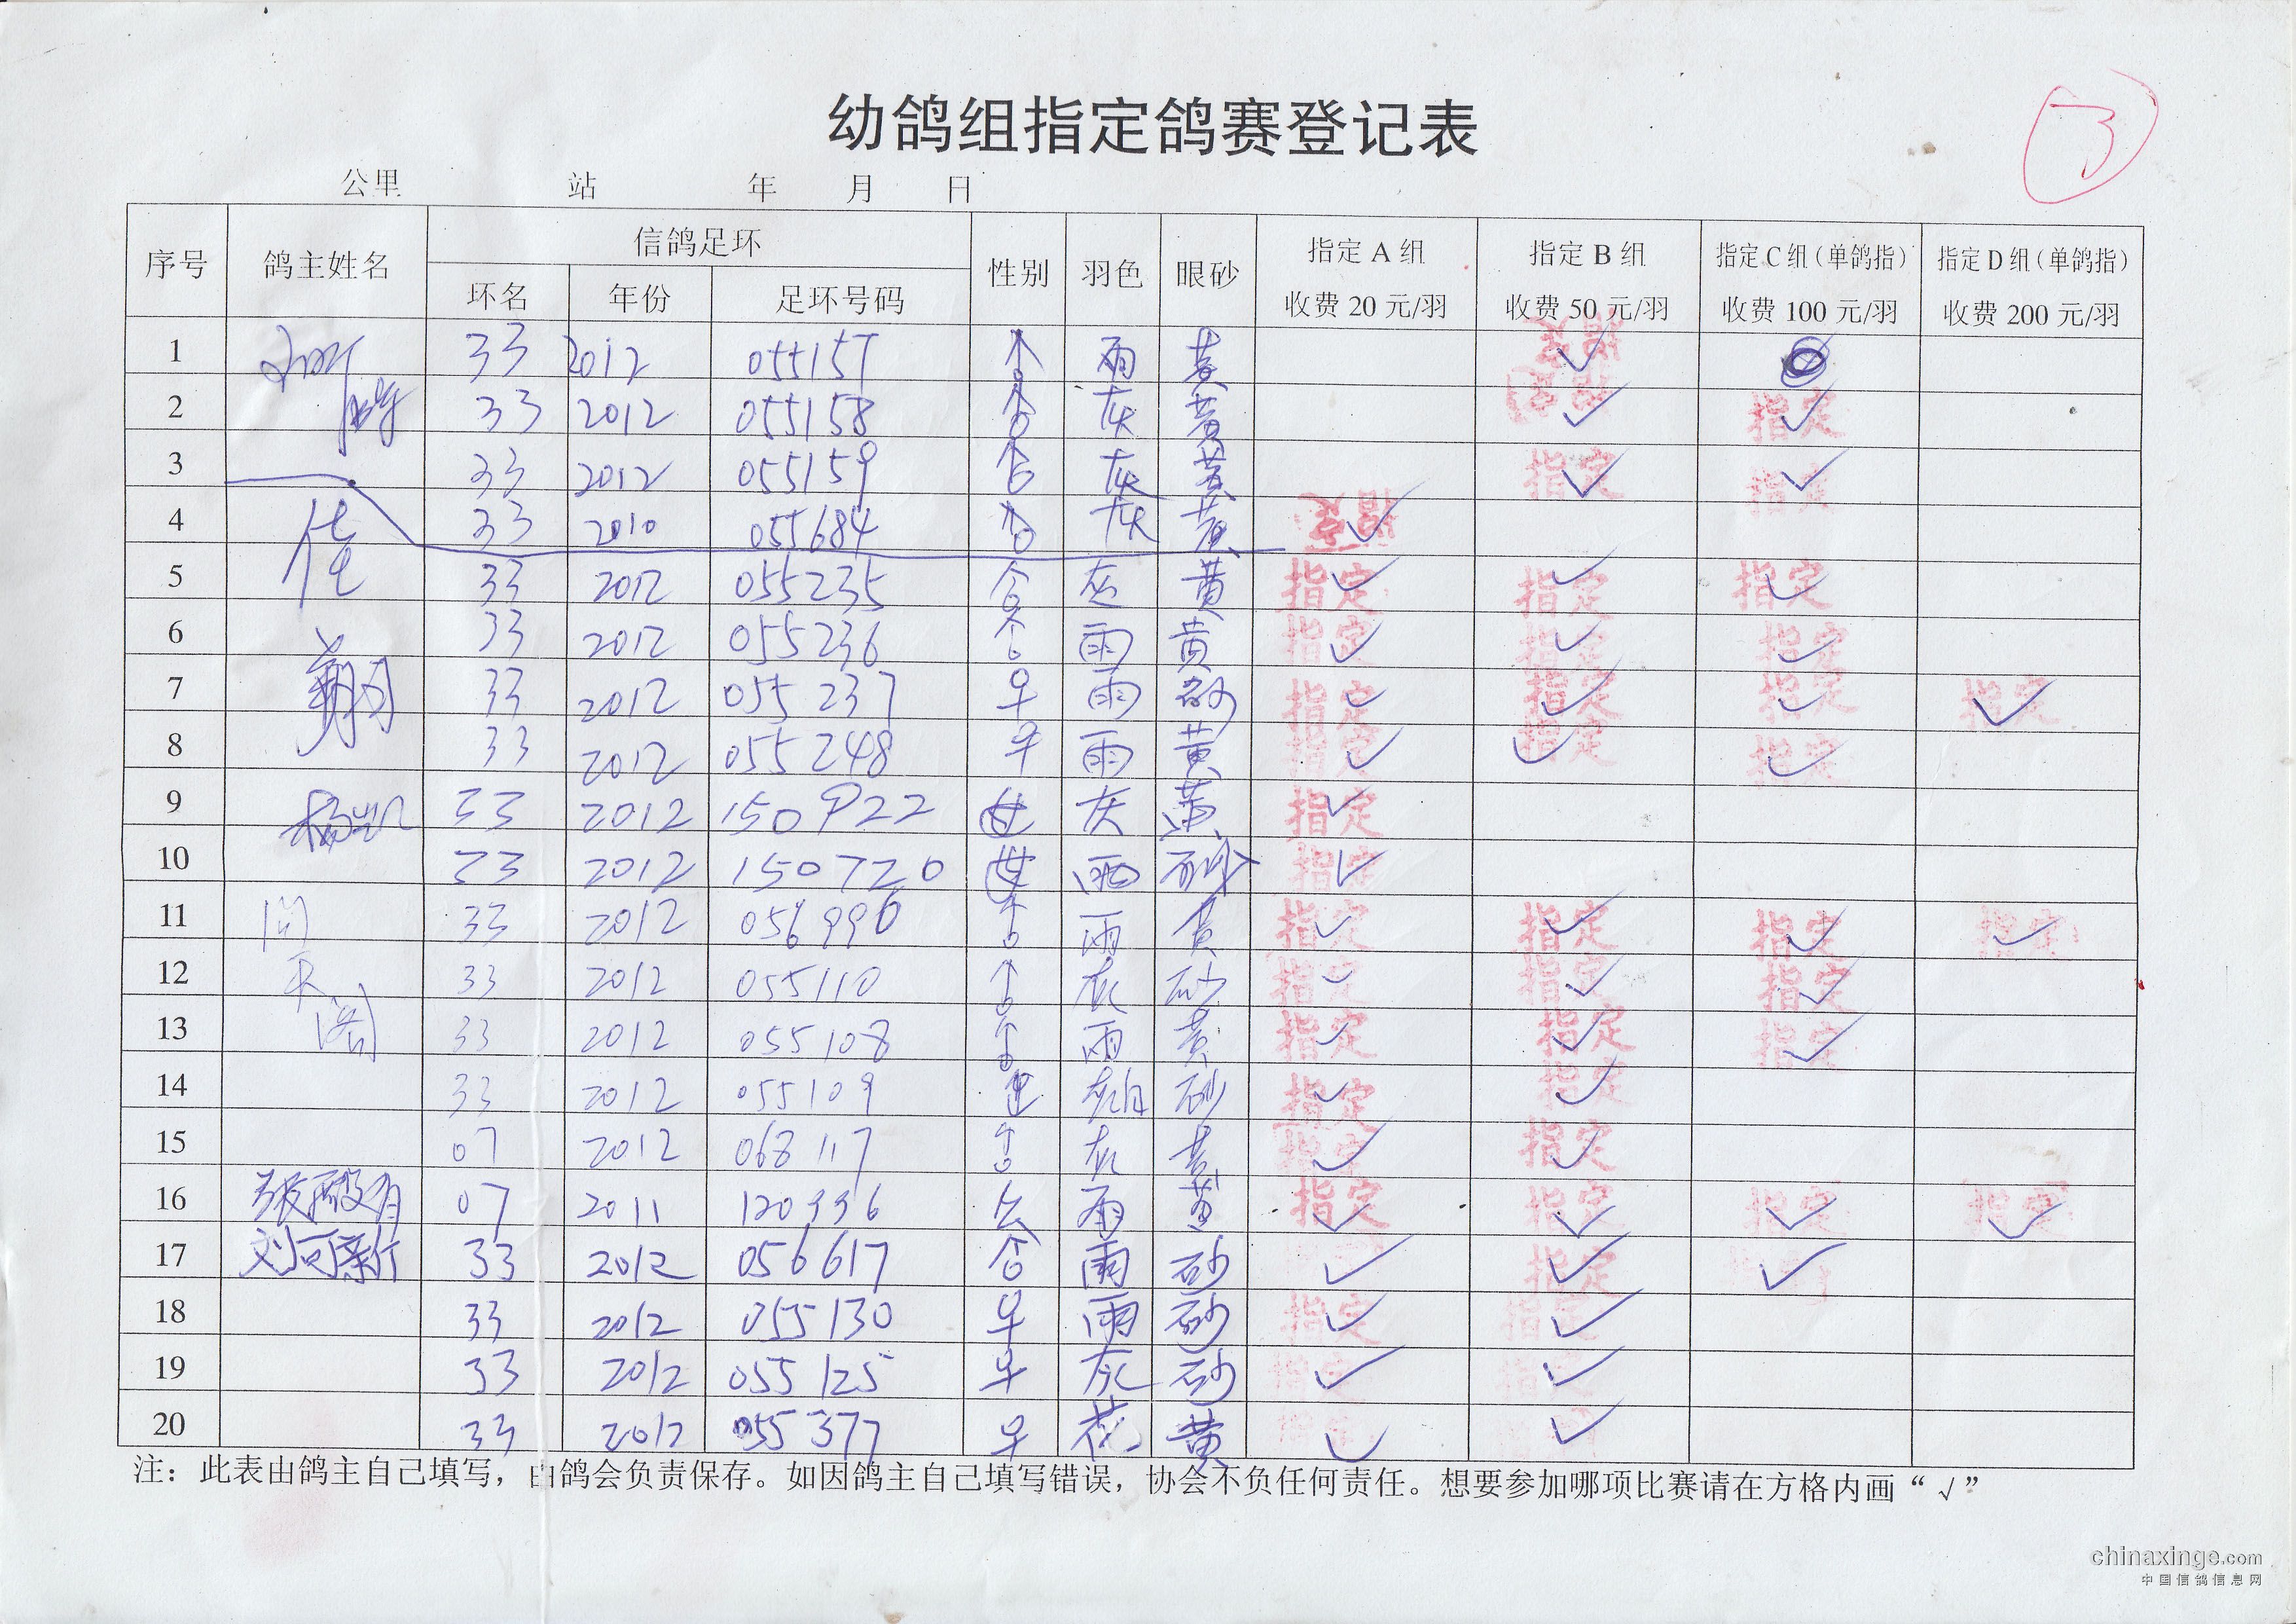 幼鸽组指定鸽赛登记表
3
公里 站 年 月 日
序号 鸽主姓名 信鸽足环 性别 羽色 眼砂 指定 A 组 指定 B 组 指定 C 组(单鸽指) 指定 D 组(单鸽指)
环名 年份 足环号码 收费 20 元/羽 收费 50 元/羽 收费 100 元/羽 收费 200 元/羽
1 33 2012 055157 雨 黄 指定 √
2 33 2012 055158 灰 黄 指定 √ 指定 √
3 33 2012 055159 灰 黄 指定 √ 指定 √
4 33 2010 055684 灰 黄 指定 √
5 佳 33 2012 055235 灰 黄 指定 √ 指定 √ 指定 √
6 33 2012 055236 雨 黄 指定 √ 指定 √ 指定 √
7 翔 33 2012 055237 雨 砂 指定 √ 指定 √ 指定 √ 指定 √
8 33 2012 055248 雨 黄 指定 √ 指定 √ 指定 √
9 杨凯 33 2012 150922 灰 黄 指定 √
10 33 2012 150720 雨 砂 指定 √
11 33 2012 056996 雨 黄 指定 √ 指定 √ 指定 √ 指定 √
12 天 33 2012 055110 灰 砂 指定 √ 指定 √ 指定 √
13 阁 33 2012 055108 雨 黄 指定 √ 指定 √ 指定 √
14 33 2012 055109 砂 指定 √ 指定 √
15 07 2012 068117 灰 黄 指定 √ 指定 √
16 07 2011 120336 雨 黄 指定 √ 指定 √ 指定 √ 指定 √
17 刘可新 33 2012 056617 雨 砂 √ 指定 √ √
18 33 2012 055130 雨 砂 指定 √ 指定 √
19 33 2012 055125 灰 砂 指定 √ 指定 √
20 33 2012 055377 花 黄 指定 √ √
注：此表由鸽主自己填写，由鸽会负责保存。如因鸽主自己填写错误，协会不负任何责任。想要参加哪项比赛请在方格内画“√”
chinaxinge.com
中国信鸽信息网